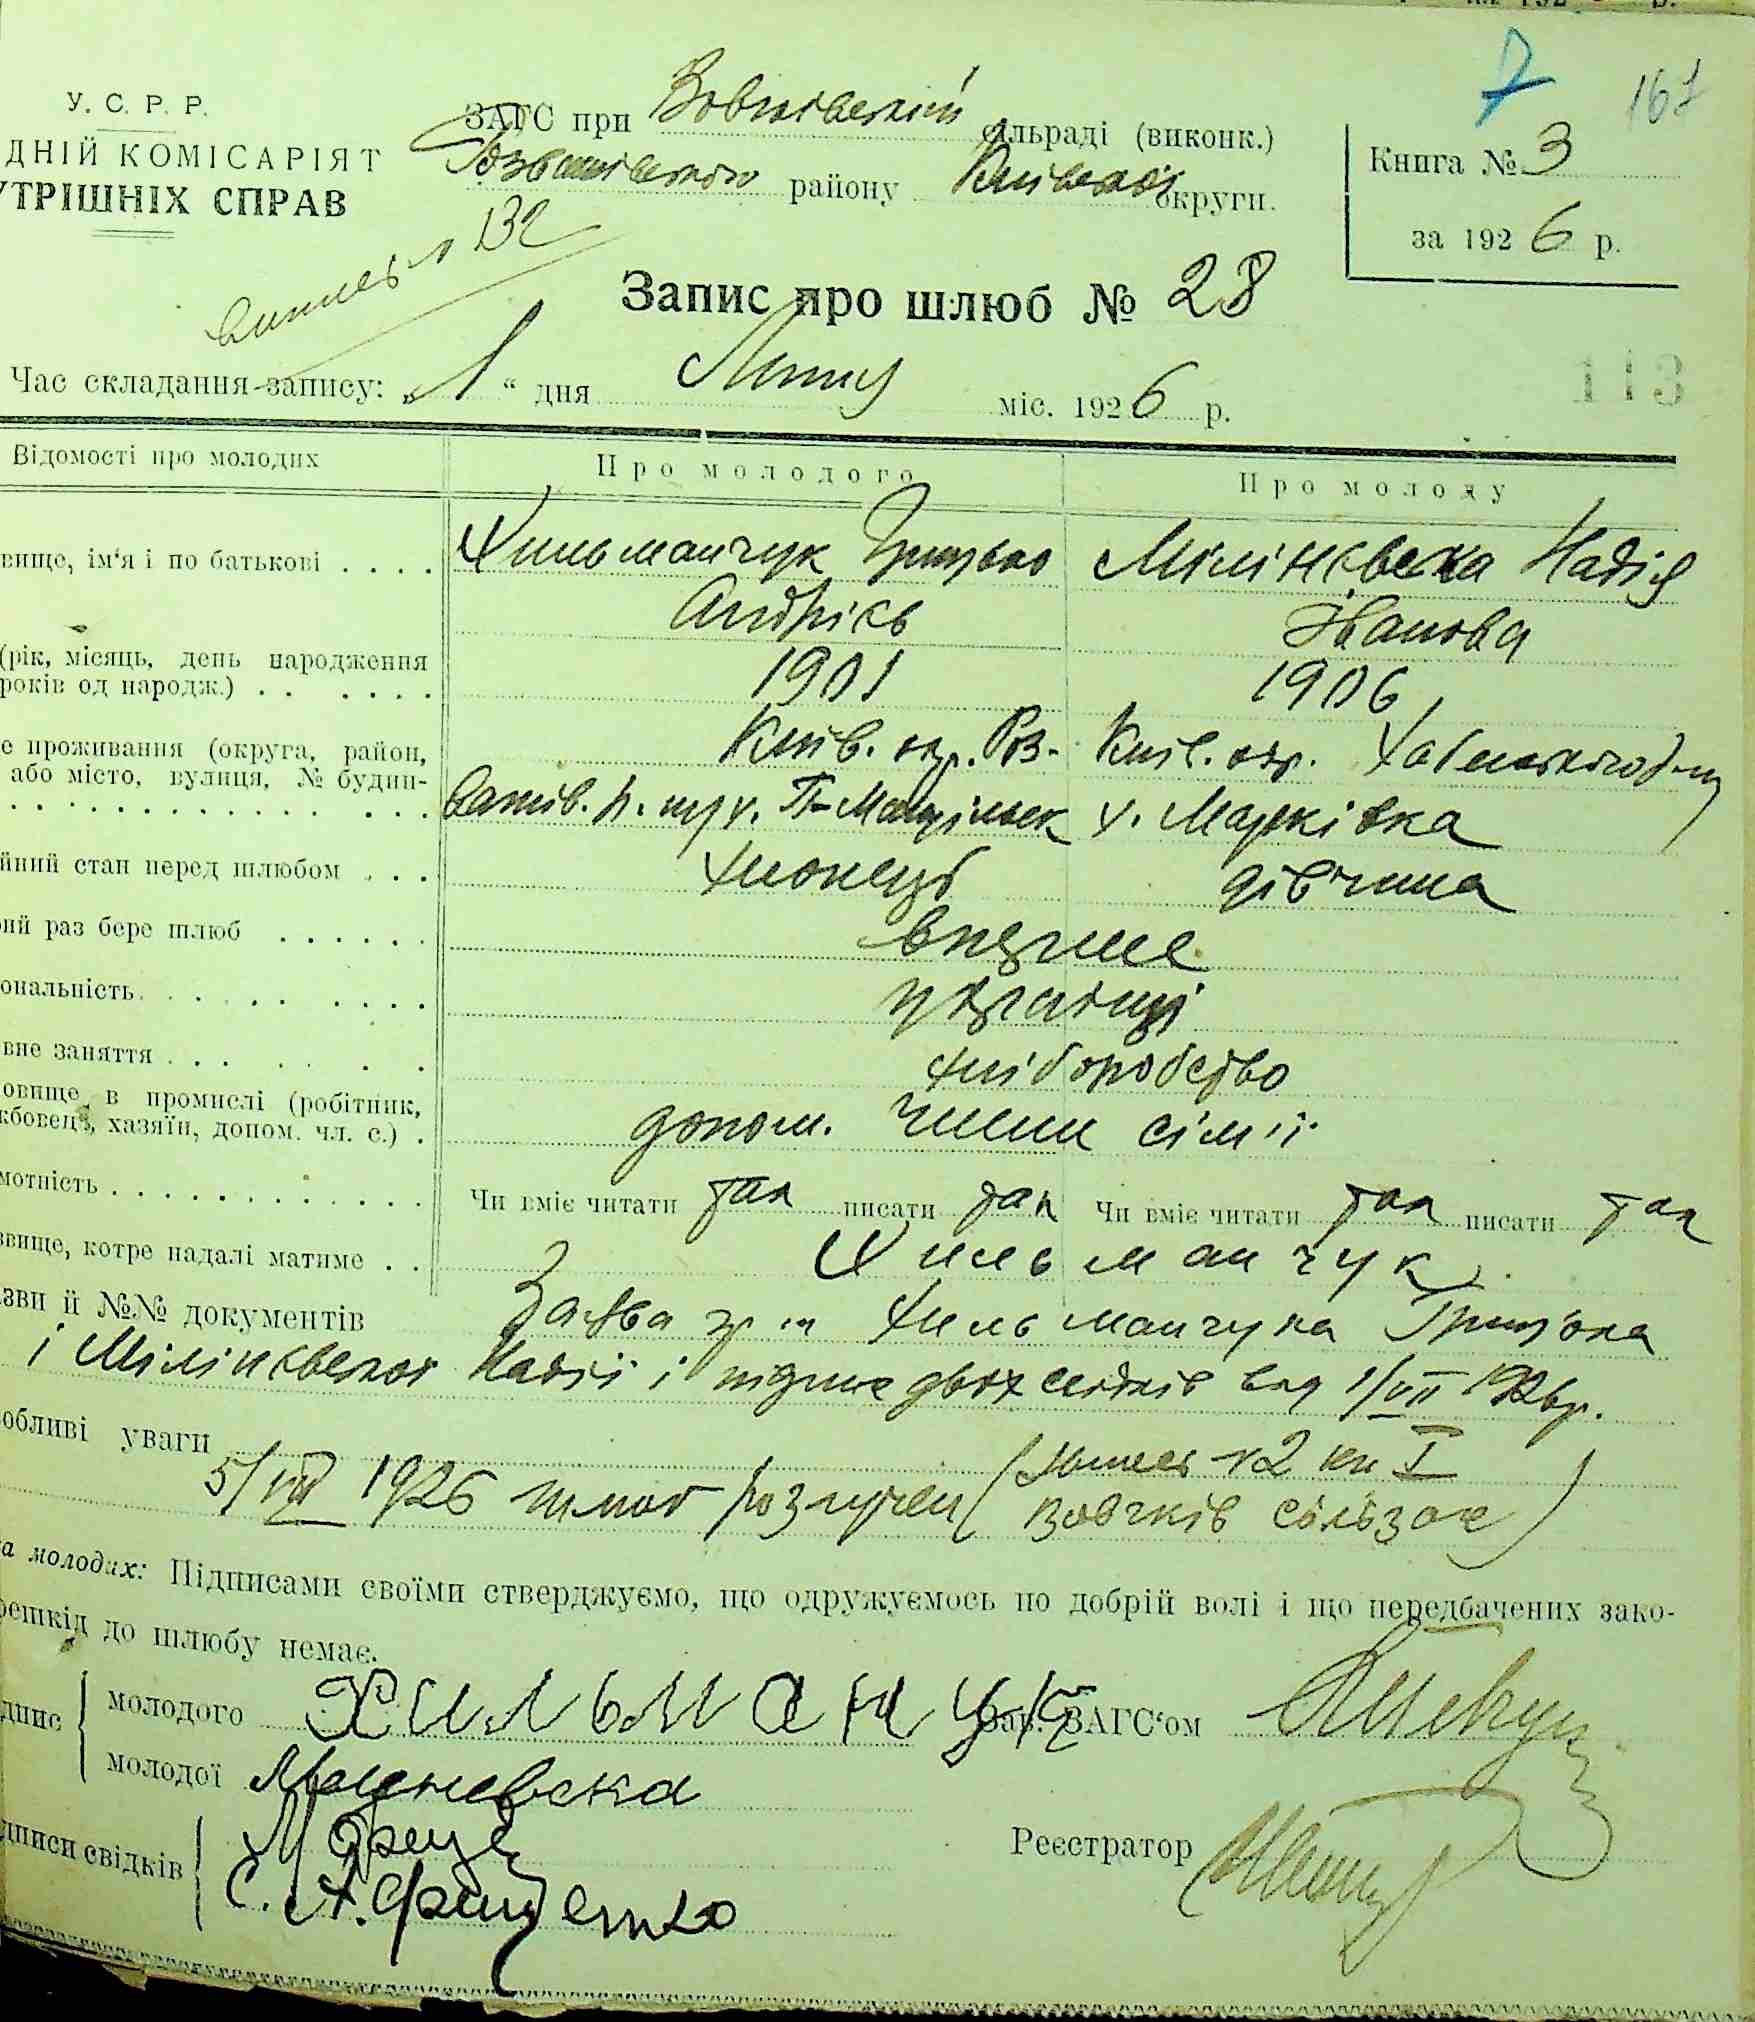 У. С. Р. Р.
ДНІЙ КОМІСАРІЯТ
УТРІШНІХ СПРАВ
ЗАГС при Вовчківській сільраді (виконк.)
Розважівського району Київської округи.
7 167
Книга № 3
за 1926 р.
132
Запис про шлюб № 28
113
Час складання запису: „1“ дня Липня міс. 1926 р.
Відомості про молодих Про молодого Про молоду
вище, ім‘я і по батькові . . . . Хильманчук Грицько Мілінєвська Надія
Андрієв Іванова
(рік, місяць, день народження
років од народж.) . . . . . . 1901 1906
е проживання (округа, район, Київ. окр. Роз- Київ. окр. Хабенського р-ну
або місто, вулиця, № будин-
важів. р. х. Марківка
йний стан перед шлюбом . . . хлопець дівчина
ий раз бере шлюб . . . . . . вперше
ональність. . . . . . . . українці
вне заняття . . . . . хліборобство
овище в промислі (робітник,
жбовець, хазяїн, допом. чл. с.) . допом. члени сім'ї
мотність . . . . . . . . . . . . Чи вміє читати так писати так Чи вміє читати так писати так
звище, котре надалі матиме . . Хильманчук
зви й №№ документів Заява гр-н Хильманчука Грицька
і Мілінєвської Надії і підпис двох свідків від 1/VII 1926 р.
обливі уваги
5/VIII 1926 шлюб розлучен ( №2 кн I
Вовчків сільзаг)
а молодих: Підписами своїми стверджуємо, що одружуємось по добрій волі і що передбачених зако-
решкід до шлюбу немає.
дпис молодого Хильманчук Зав. ЗАГС‘ом
молодої Міленевска
дписи свідків
Реєстратор
С. А. Фещенко